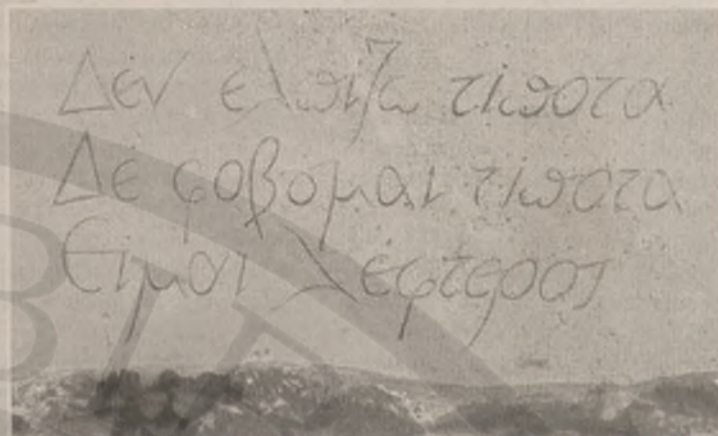 Δέν ελπιζω τίποτα
Δέ φοβομαι τίποτα
Ειμαι λέφτερος